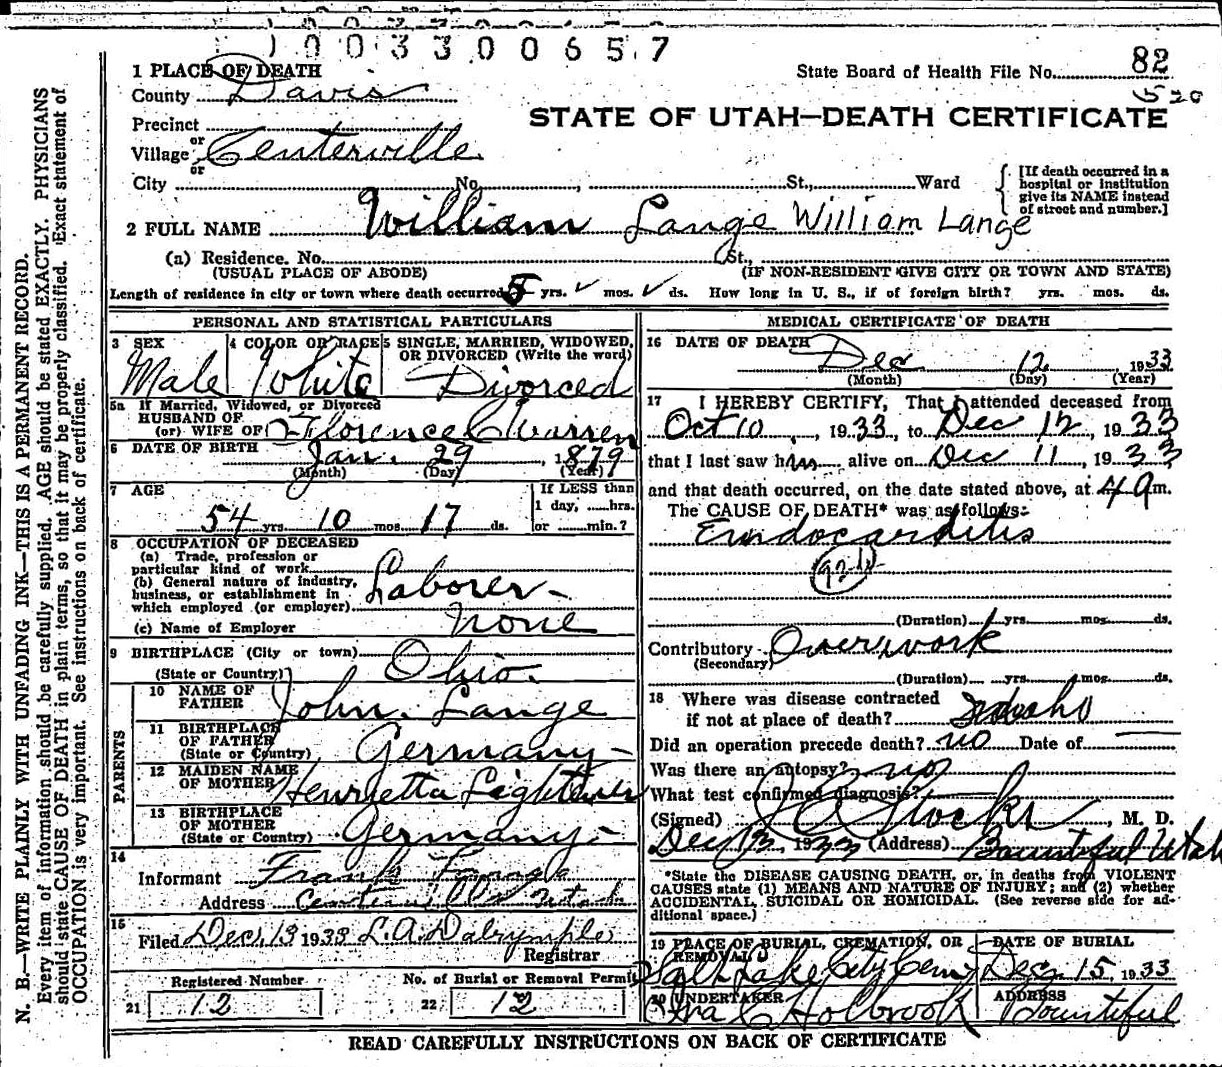 1003300657
1 PLACE OF DEATH
State Board of Health File No. 82
County Davis
520
STATE OF UTAH—DEATH CERTIFICATE
Precinct
or
Village Centerville
or
City No. , St., Ward
[If death occurred in a
hospital or institution
give its NAME instead
of street and number.]
2 FULL NAME William Lange William Lange
(a) Residence. No. St.,
(USUAL PLACE OF ABODE) (IF NON-RESIDENT GIVE CITY OR TOWN AND STATE)
Length of residence in city or town where death occurred 5 yrs. ✓ mos. ✓ ds. How long in U. S., if of foreign birth? yrs. mos. ds.
PERSONAL AND STATISTICAL PARTICULARS
3 SEX
Male
4 COLOR OR RACE
White
5 SINGLE, MARRIED, WIDOWED,
OR DIVORCED (Write the word)
Divorced
5a If Married, Widowed, or Divorced
HUSBAND OF
(or) WIFE OF Florence C Warren
6 DATE OF BIRTH Jan. 29, 1879
(Month) (Day) (Year)
7 AGE
54 yrs. 10 mos. 17 ds.
If LESS than
1 day, hrs.
or min.?
8 OCCUPATION OF DECEASED
(a) Trade, profession or
particular kind of work
(b) General nature of industry,
business, or establishment in
which employed (or employer) Laborer-
(c) Name of Employer none
9 BIRTHPLACE (City or town)
(State or Country) Ohio.
PARENTS
10 NAME OF
FATHER John Lange
11 BIRTHPLACE
OF FATHER
(State or Country) Germany-
12 MAIDEN NAME
OF MOTHER Henrietta
13 BIRTHPLACE
OF MOTHER
(State or Country) Germany-
14
Informant Frank
Address Centerville Utah
15
Filed Dec. 13 1933 L. A. Dalrymple
Registrar
Registered Number
21 12
No. of Burial or Removal Permit
22 12
MEDICAL CERTIFICATE OF DEATH
16 DATE OF DEATH
Dec 12 1933
(Month) (Day) (Year)
17 I HEREBY CERTIFY, That I attended deceased from
Oct 10, 1933, to Dec 12, 1933
that I last saw him alive on Dec 11, 1933
and that death occurred, on the date stated above, at 4 a m.
The CAUSE OF DEATH* was as follows:
Endocarditis
92b
(Duration) yrs. mos. ds.
Contributory Overwork
(Secondary)
(Duration) yrs. mos. ds.
18 Where was disease contracted
if not at place of death? Idaho
Did an operation precede death? no Date of
Was there an autopsy? no
What test confirmed diagnosis?
(Signed) Stocks, M. D.
Dec 13, 1933 (Address) Bountiful Utah
*State the DISEASE CAUSING DEATH, or, in deaths from VIOLENT
CAUSES state (1) MEANS AND NATURE OF INJURY; and (2) whether
ACCIDENTAL, SUICIDAL OR HOMICIDAL. (See reverse side for ad-
ditional space.)
19 PLACE OF BURIAL, CREMATION, OR
REMOVAL
Salt Lake City Cem
DATE OF BURIAL
Dec 15, 1933
20 UNDERTAKER
Ira C Holbrook
ADDRESS
Bountiful
READ CAREFULLY INSTRUCTIONS ON BACK OF CERTIFICATE
N. B.—WRITE PLAINLY WITH UNFADING INK—THIS IS A PERMANENT RECORD.
Every item of information should be carefully supplied. AGE should be stated EXACTLY. PHYSICIANS
should state CAUSE OF DEATH in plain terms, so that it may be properly classified. Exact statement of
OCCUPATION is very important. See instructions on back of certificate.